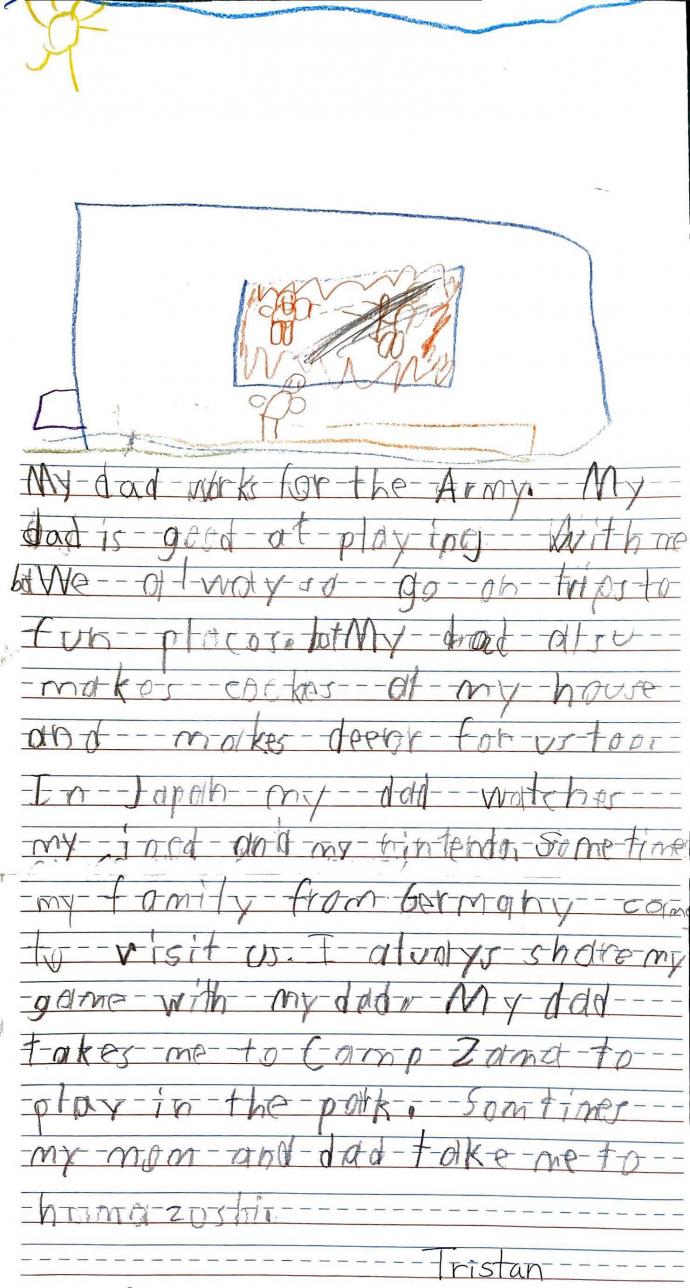 My dad works for the Army. My
dad is good at playing With me
but We alwaysd go on trips to
fun places. but My dad also
makes cackes at my house
and makes deener for us too.
In Japan my dad watches
my ined and my nintendo. Sometimes
my family from Germany come
to visit us. I always share my
game with my dad. My dad
takes me to Camp Zama to
play in the park. Somtimes
my mom and dad take me to
Tristan